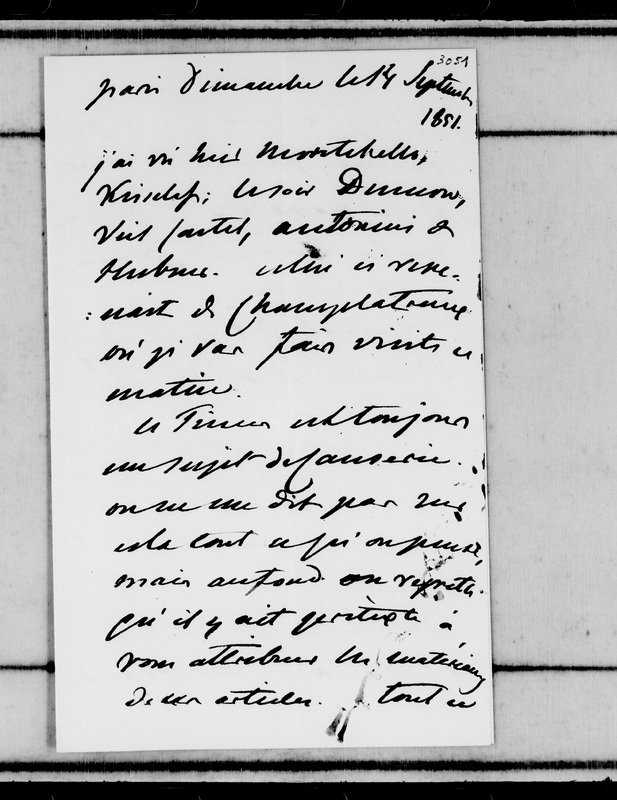 3051
paris Dimanche le 14 Septembre
1851.
j'ai vu hier Montebello,
Kisselef; le soir Dumon,
Viel Castel, Antonini &
Hubner. celui ci reve-
:nait de Champlatreux
où j'irai faire visite ce
matin.
le Times est toujours
un sujet de causerie.
on ne me dit pas sur
cela tout ce qu'on pense,
mais au fond on regrette
qu'il y ait prétexte à
vous attribuer les matériaux
de ces articles. tout ce